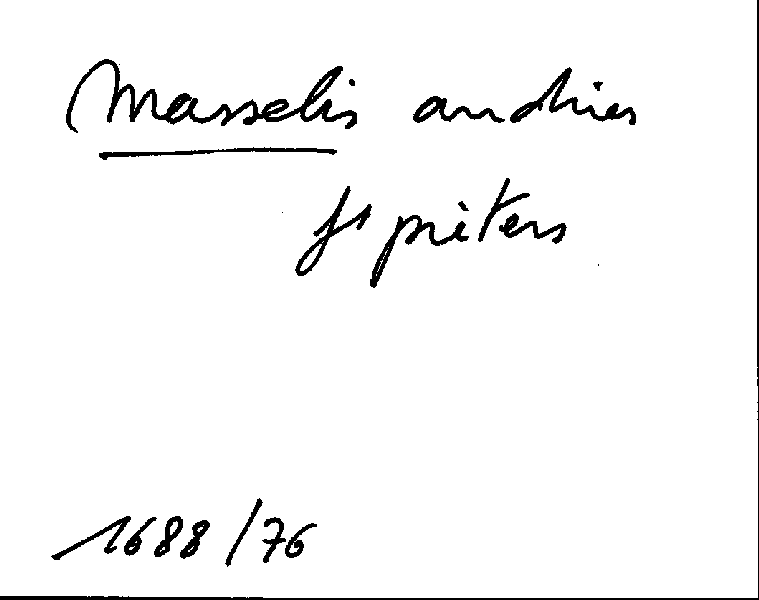 Masselis andries
fs pieters
1688/76